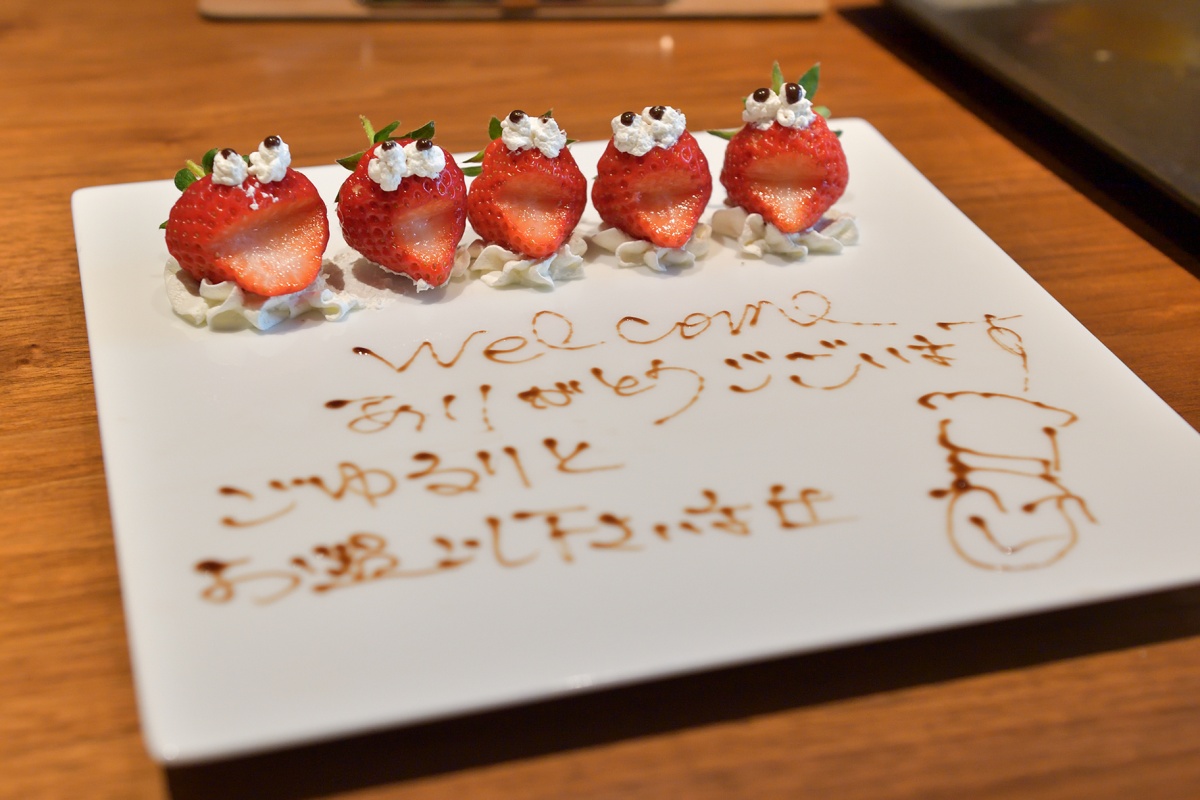 Welcome
ありがとうございます
ごゆるりと
お過ごし下さいませ